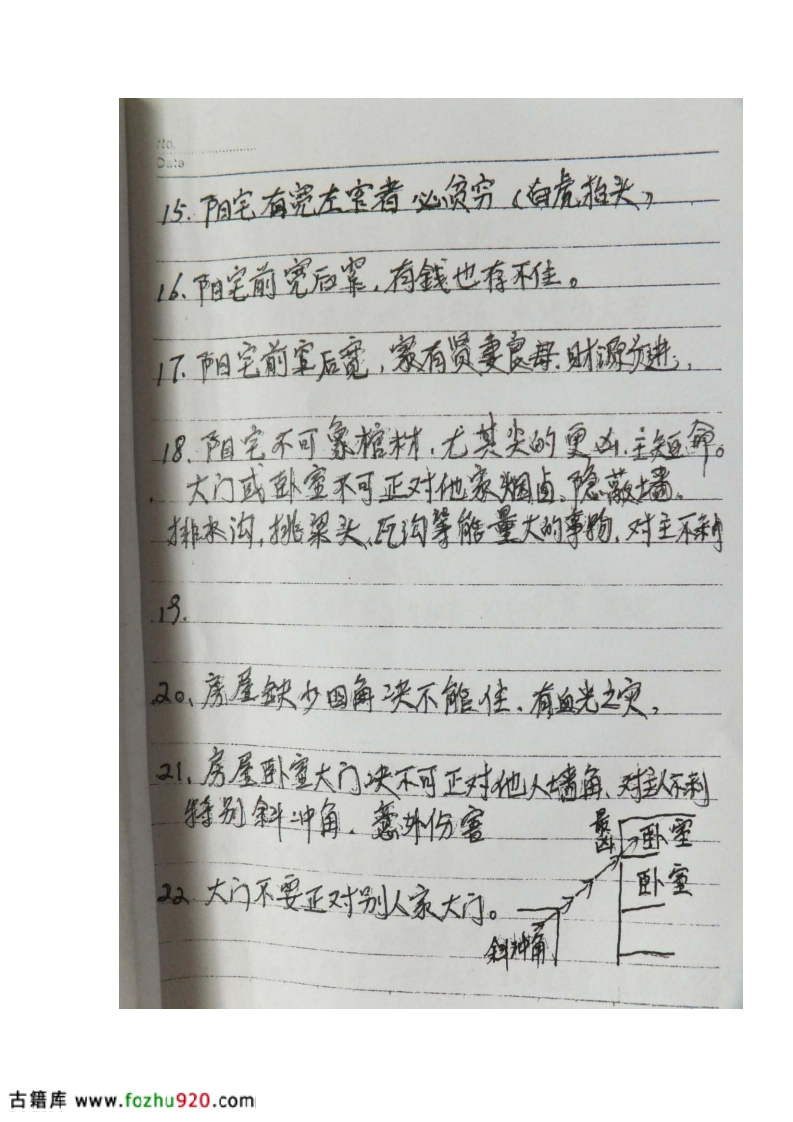 No.
Date
15. 阳宅有宽左窄者必贫穷(白虎抬头)
16. 阳宅前宽后窄,有錢也存不住。
17. 阳宅前窄后宽,家有贤妻良母,财源广进,
18. 阳宅不可象棺材,尤其尖的更凶,主短命。
大门或卧室不可正对他家烟卤、隐蔽墙、
排水沟,挑梁头,瓦沟等能量大的事物,对主不利
19.
20、房屋缺少四角决不能住,有血光之灾,
21、房屋卧室大门决不可正对他人墙角,对主人不利
特别斜冲角,意外伤害
最凶
卧室
卧室
22、大门不要正对别人家大门。
斜冲角
古籍库 www.fozhu920.com